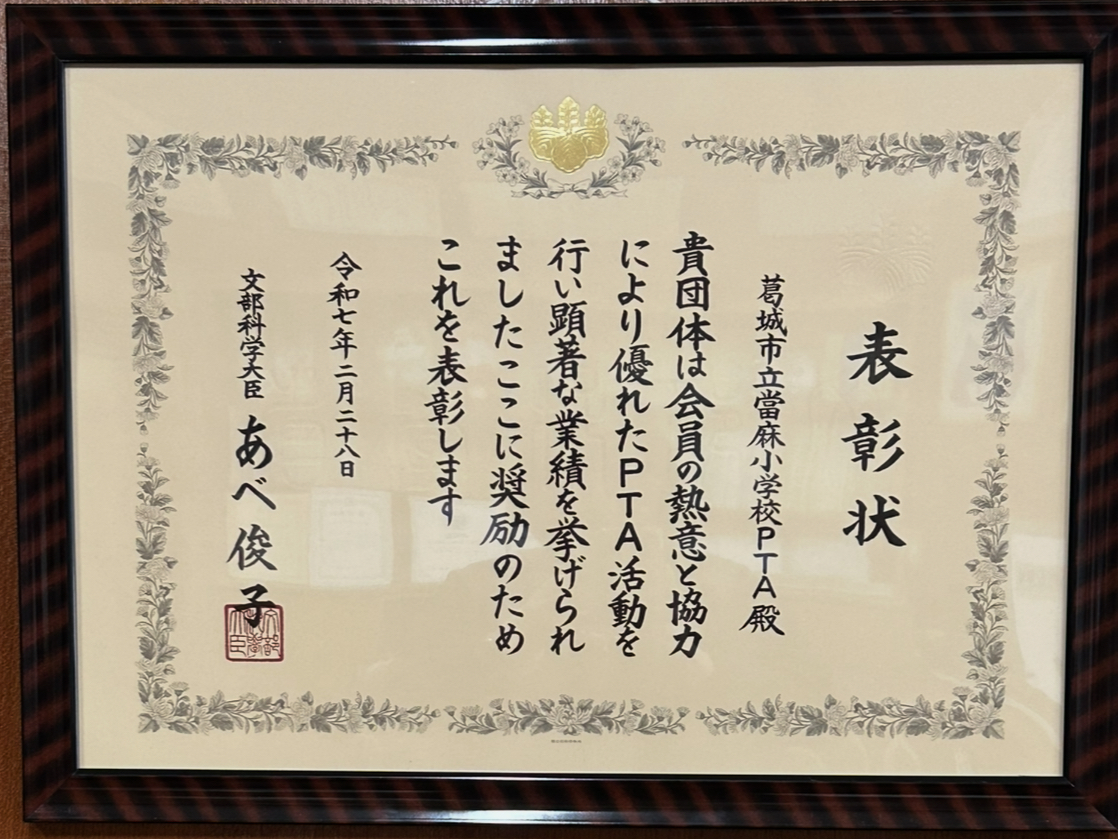 表彰状
葛城市立當麻小学校PTA殿
貴団体は会員の熱意と協力
により優れたPTA活動を
行い顕著な業績を挙げられ
ましたここに奨励のため
これを表彰します
令和七年二月二十八日
文部科学大臣 あべ俊子